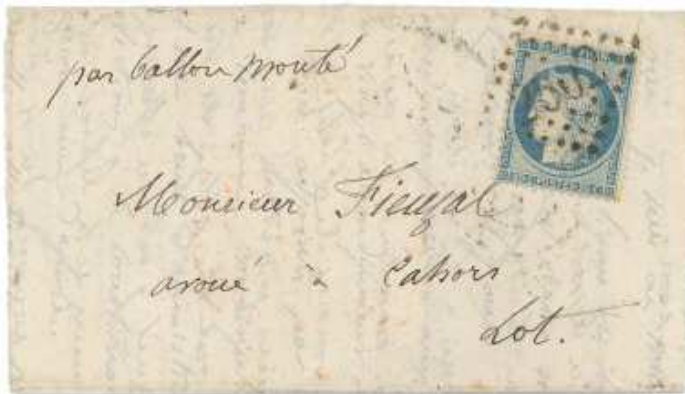 par Ballon monté
Monsieur Fieuzal
avoué à Cahors
Lot.